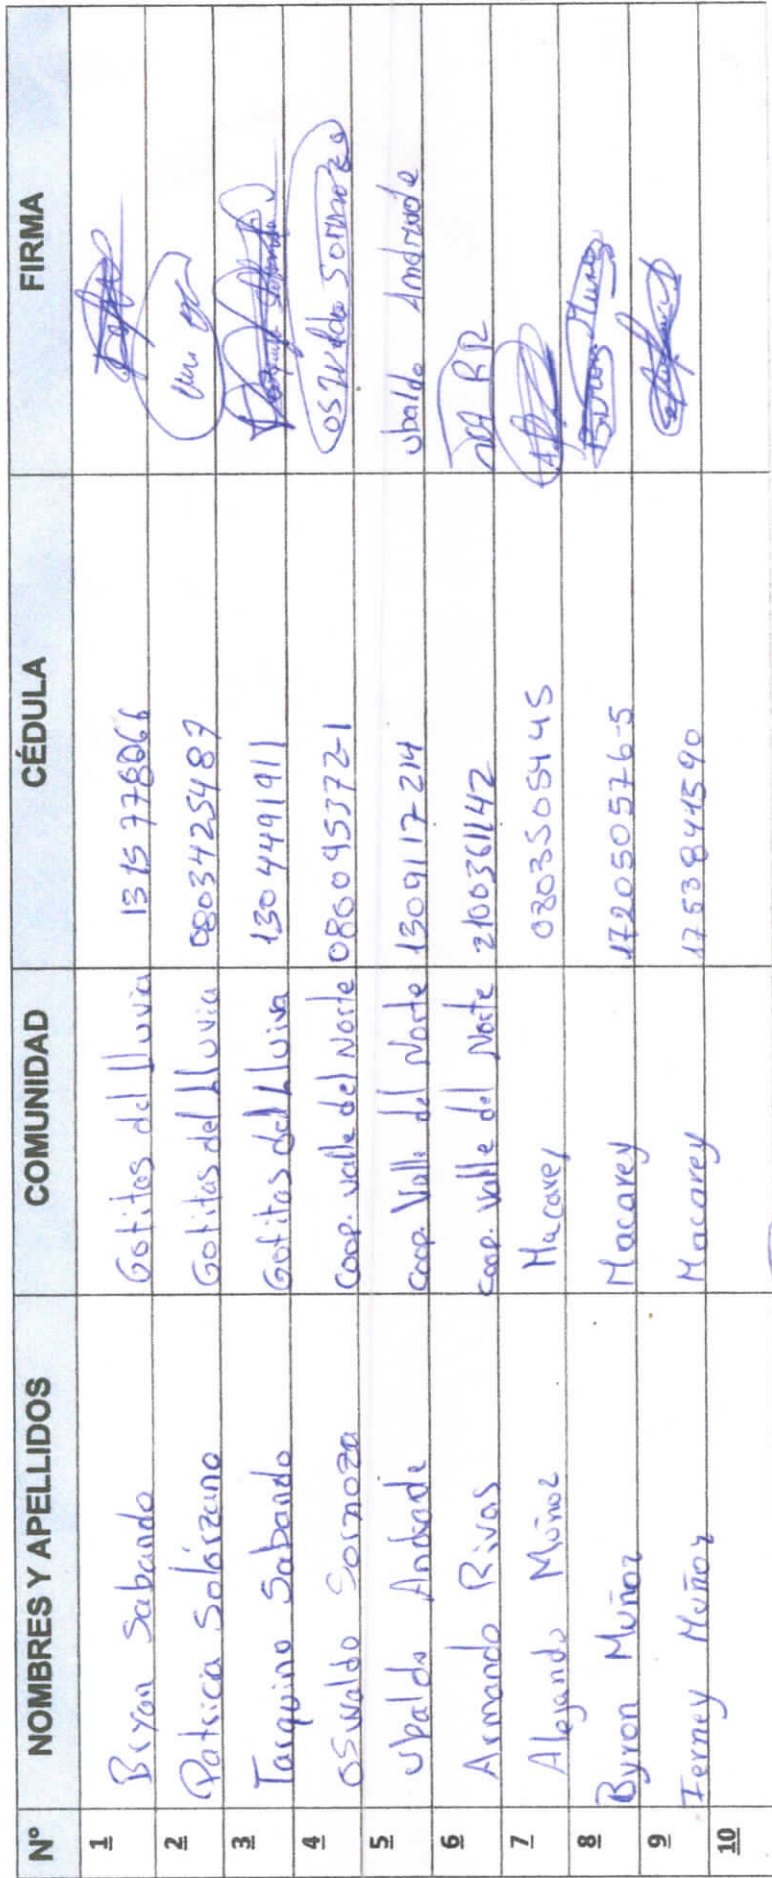 N° NOMBRES Y APELLIDOS COMUNIDAD CÉDULA FIRMA
1 Bryan Sabando Gotitas del lluvia 1315778066
2 Patricia Solórzano Gotitas del lluvia 0803425487
3 Tarquino Sabando Gotitas del lluiva 1304491911
4 Oswaldo Sornoza Coop. Valle del Norte 080095372-1 Oswaldo Sornoza
5 Ubaldo Andrade Coop. Valle del Norte 1309117214 Ubaldo Andrade
6 Armando Rivas Coop. Valle del Norte 2100361142
7 Alejando Muñoz Macarey 0803505445
8 Byron Muñoz Macarey 172050576-5 Byron Muñoz
9 Ferney Muñoz Macarey 1753841590
10